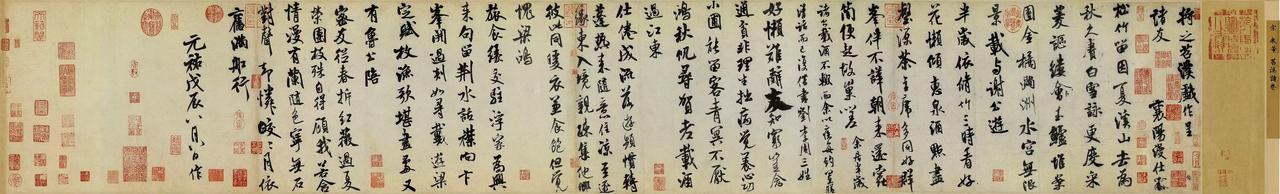 宋米芾苕溪詩卷
將之苕溪戲作呈
諸友　襄陽漫仕黻
松竹留因夏溪山去為
秋久賡白雪詠更度采
菱謳縷會玉鱸堆案
團金橘滿洲水宮無限
景載与謝公遊
半歲依脩竹三時看好
花懶傾惠泉酒點盡
壑源茶主席多同好群
峯伴不譁朝來還蠹
簡便起故巢嗟　余居半歲
諸公載酒不輟而余以疾每約置
膳清話而已復借書劉李周三姓
好懶難辭友知窮豈念
通貧非理生拙病覺養心功
小圃能留客青冥不厭
鴻秋帆尋賀老載酒
過江東
仕倦成流落遊頻慣轉
蓬熱來隨意住涼至逐
緣東入境親疎集他鄉
彼此同暖衣兼食飽但覺
愧梁鴻
旅食緣交駐浮家為興
來句留荊水話襟向卞
峯開過剡如尋戴遊梁
定賦枚漁歌堪畫處又
有魯公陪
密友從春拆紅薇過夏
榮團枝殊自得顧我若含
情漫有蘭隨色寧無石
對聲却憐皎皎月依
舊滿船行
元祐戊辰八月八日作